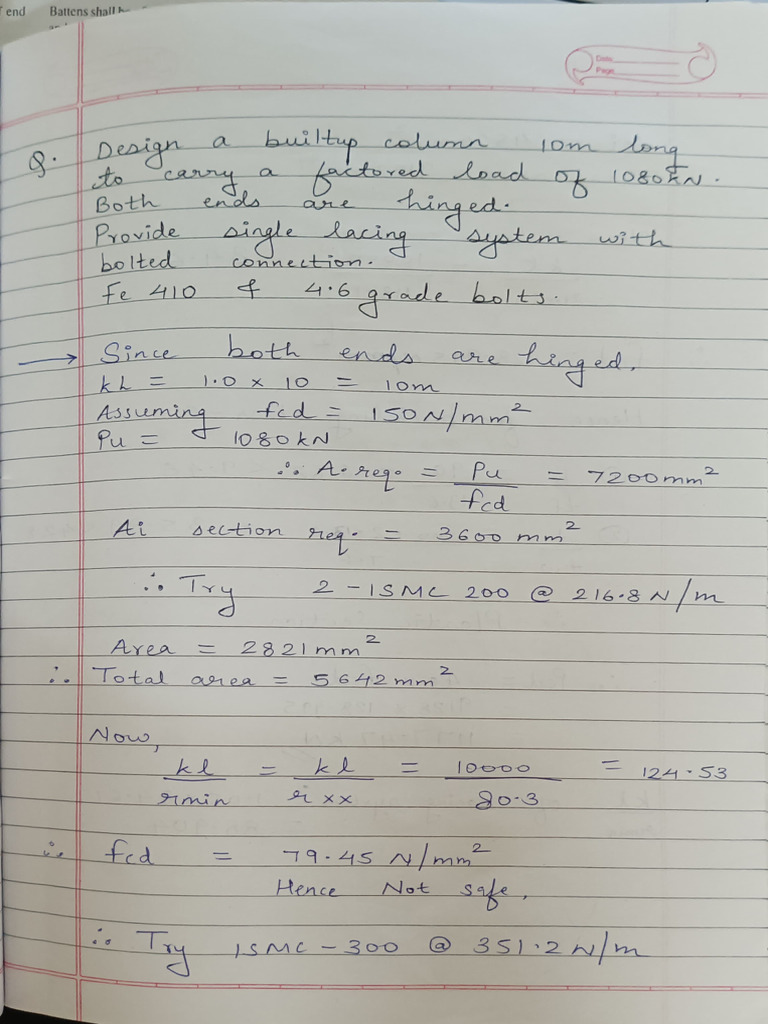 end Battens shall
Date
Page
Q. Design a builtup column 10m long
to carry a factored load of 1080kN.
Both ends are hinged.
Provide single lacing system with
bolted connection.
Fe 410 & 4.6 grade bolts.
→ Since both ends are hinged.
kL = 1.0 x 10 = 10m
Assuming fcd = 150 N/mm²
Pu = 1080kN
∴ A.req. = Pu/fcd = 7200mm²
Ai section req. = 3600 mm²
∴ Try 2 - ISMC 200 @ 216.8 N/m
Area = 2821mm²
∴ Total area = 5642mm²
Now,
kl/rmin = kl/rxx = 10000/80.3 = 124.53
∴ fcd = 79.45 N/mm²
Hence Not safe.
∴ Try ISMC - 300 @ 351.2 N/m